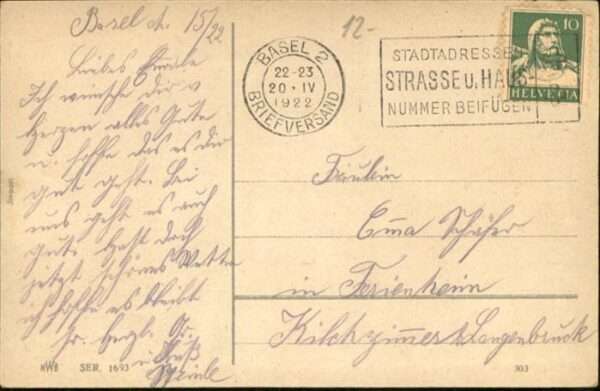 Basel d. 15/22
12-
Liebes Emmale
Ich wünsche dir v
Herzen alles Gute
u. hoffe das es dir
gut geht. Bei
uns geht es auch
gut. Habt doch
jetzt schönes Wetter
ich hoffe es bleibt
so. Herzl. Gr.
u. Kuß
BASEL 2
22-23
20·IV
1922
BRIEFVERSAND
STADTADRESSEN
STRASSE u. HAUS
NUMMER BEIFÜGEN
10
HELVETIA
Fräulein
Emma Schäfer
in Ferienheim
Kilchzimmer b. Langenbruck
SER. 1693
303